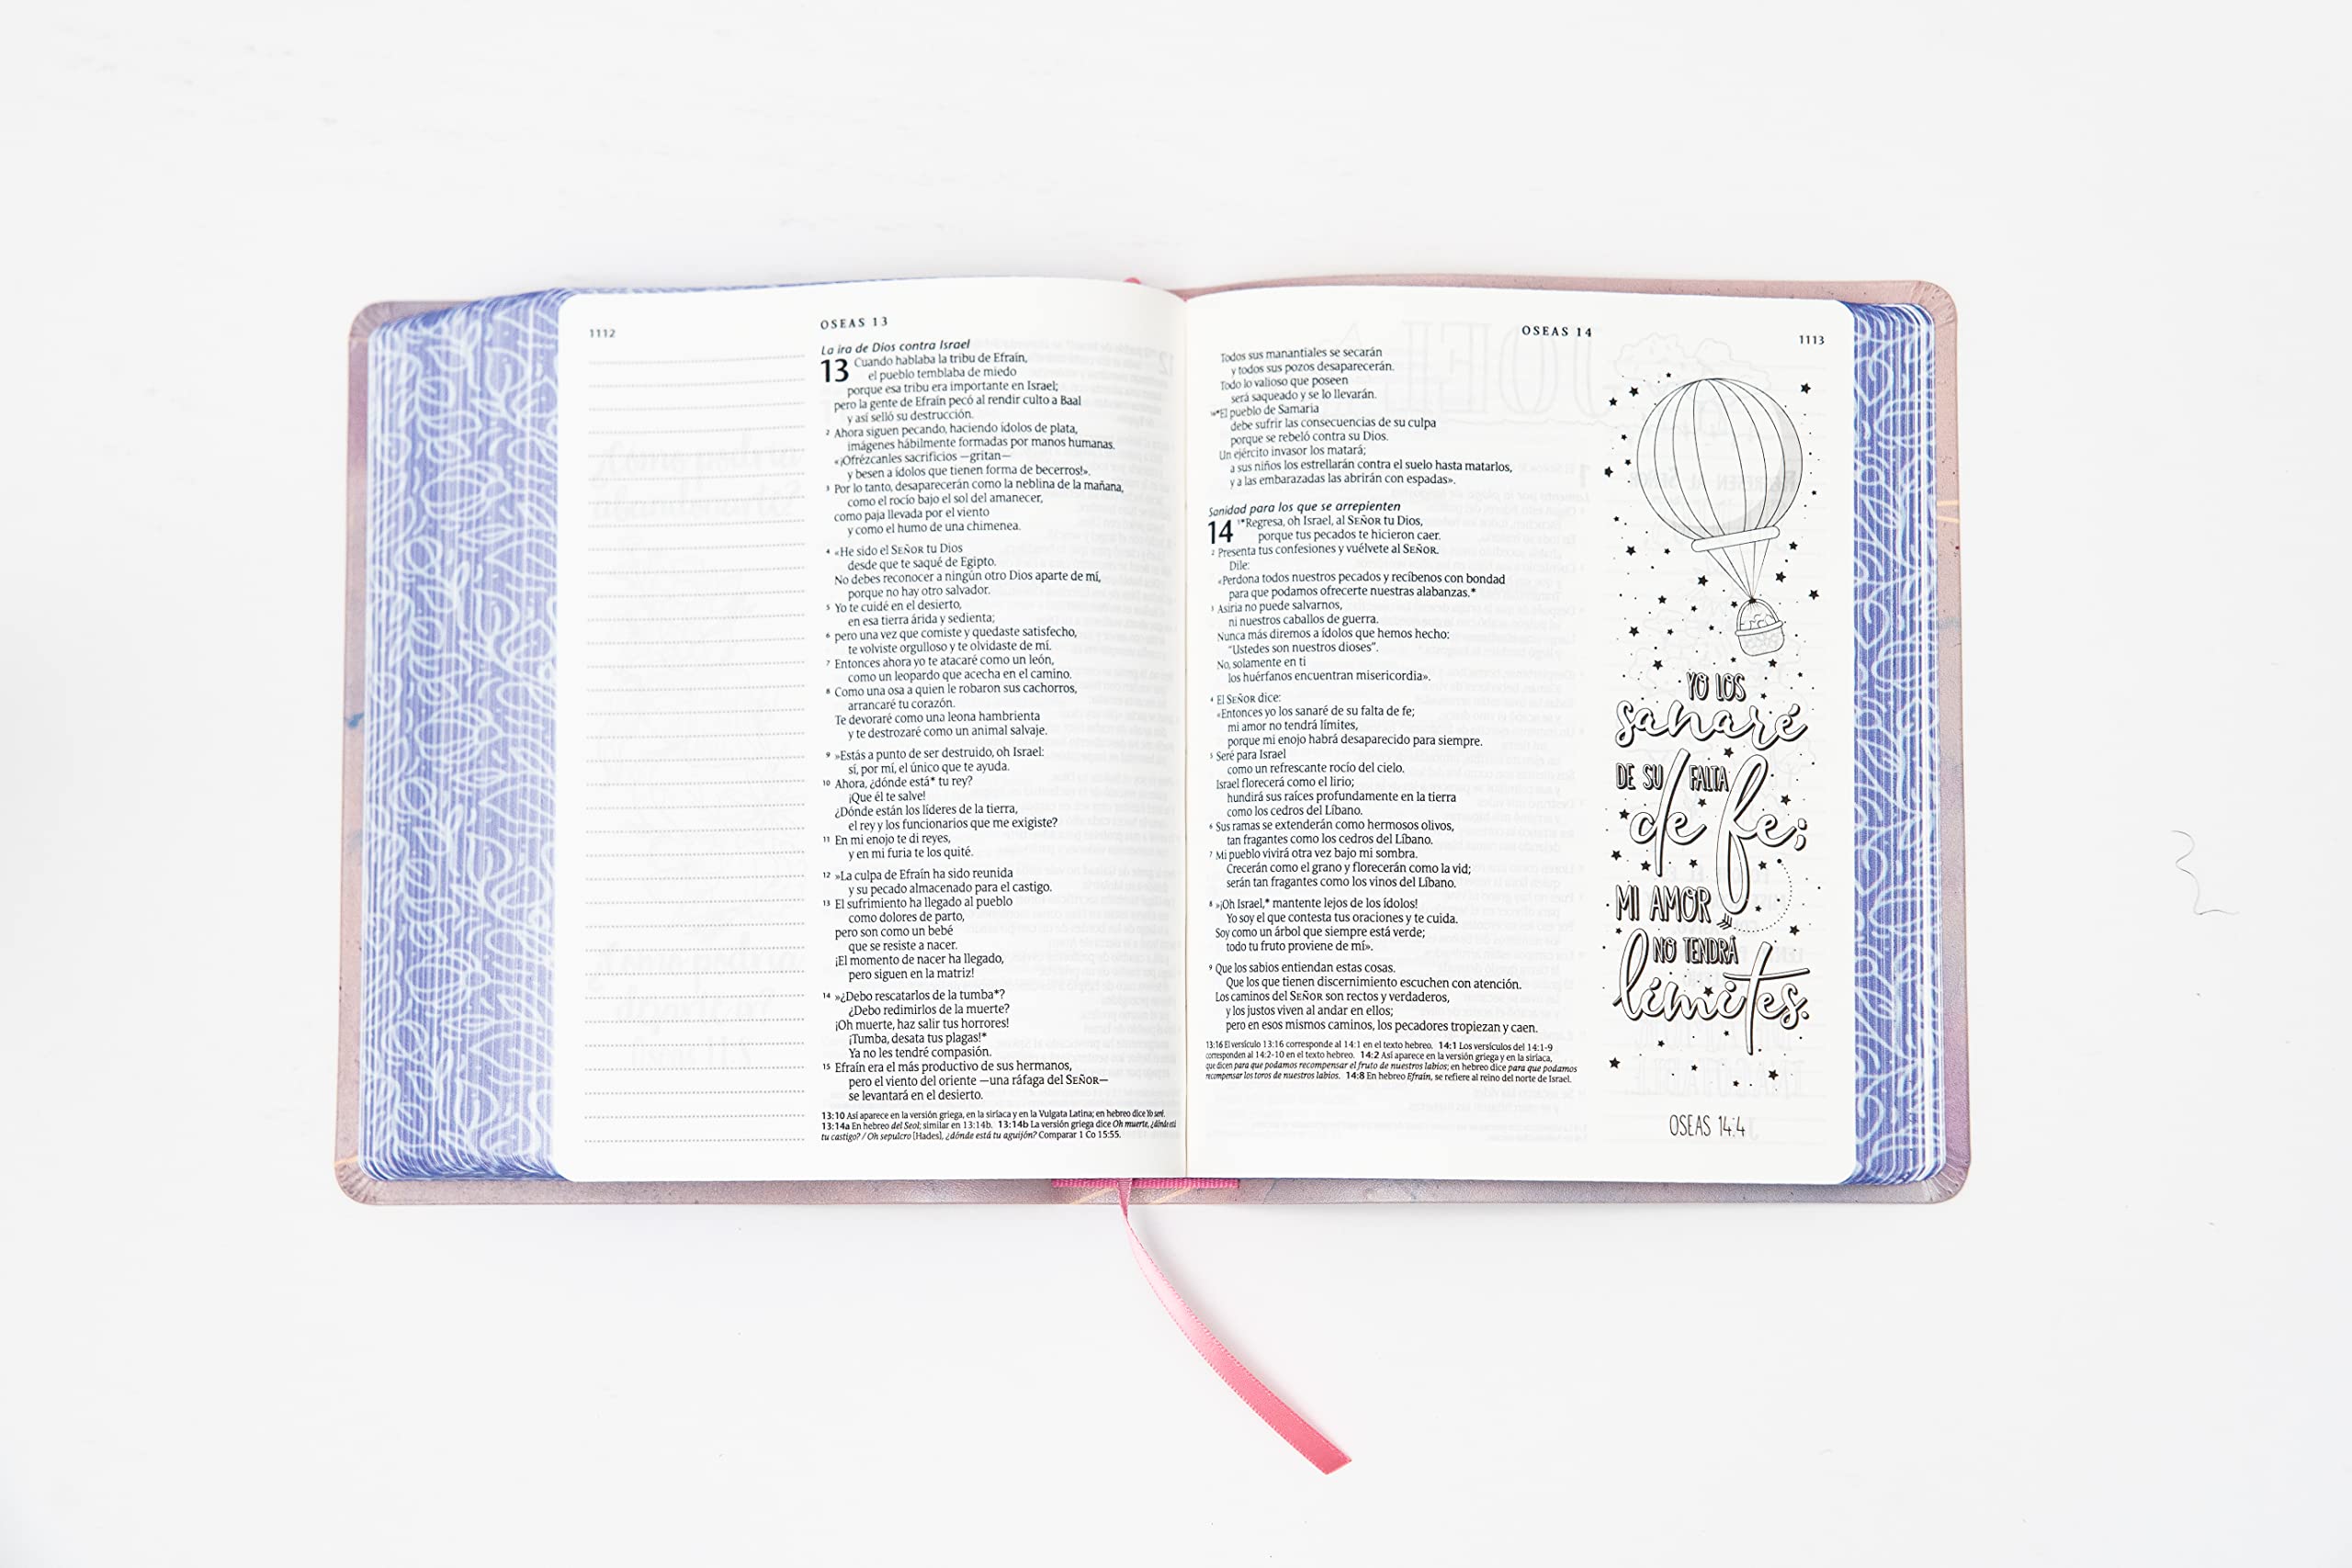 1112
OSEAS 13
La ira de Dios contra Israel
13 Cuando hablaba la tribu de Efraín,
el pueblo temblaba de miedo
porque esa tribu era importante en Israel;
pero la gente de Efraín pecó al rendir culto a Baal
y así selló su destrucción.
2 Ahora siguen pecando, haciendo ídolos de plata,
imágenes hábilmente formadas por manos humanas.
«¡Ofrézcanles sacrificios —gritan—
y besen a ídolos que tienen forma de becerros!».
3 Por lo tanto, desaparecerán como la neblina de la mañana,
como el rocío bajo el sol del amanecer,
como paja llevada por el viento
y como el humo de una chimenea.
4 «He sido el SEÑOR tu Dios
desde que te saqué de Egipto.
No debes reconocer a ningún otro Dios aparte de mí,
porque no hay otro salvador.
5 Yo te cuidé en el desierto,
en esa tierra árida y sedienta;
6 pero una vez que comiste y quedaste satisfecho,
te volviste orgulloso y te olvidaste de mí.
7 Entonces ahora yo te atacaré como un león,
como un leopardo que acecha en el camino.
8 Como una osa a quien le robaron sus cachorros,
arrancaré tu corazón.
Te devoraré como una leona hambrienta
y te destrozaré como un animal salvaje.
9 »Estás a punto de ser destruido, oh Israel:
sí, por mí, el único que te ayuda.
10 Ahora, ¿dónde está* tu rey?
¡Que él te salve!
¿Dónde están los líderes de la tierra,
el rey y los funcionarios que me exigiste?
11 En mi enojo te di reyes,
y en mi furia te los quité.
12 »La culpa de Efraín ha sido reunida
y su pecado almacenado para el castigo.
13 El sufrimiento ha llegado al pueblo
como dolores de parto,
pero son como un bebé
que se resiste a nacer.
¡El momento de nacer ha llegado,
pero siguen en la matriz!
14 »¿Debo rescatarlos de la tumba*?
¿Debo redimirlos de la muerte?
¡Oh muerte, haz salir tus horrores!
¡Tumba, desata tus plagas!*
Ya no les tendré compasión.
15 Efraín era el más productivo de sus hermanos,
pero el viento del oriente —una ráfaga del SEÑOR—
se levantará en el desierto.
13:10 Así aparece en la versión griega, en la siríaca y en la Vulgata Latina; en hebreo dice Yo seré.
13:14a En hebreo del Seol; similar en 13:14b. 13:14b La versión griega dice Oh muerte, ¿dónde está
tu castigo? / Oh sepulcro [Hades], ¿dónde está tu aguijón? Comparar 1 Co 15:55.
OSEAS 14
1113
Todos sus manantiales se secarán
y todos sus pozos desaparecerán.
Todo lo valioso que poseen
será saqueado y se lo llevarán.
16*El pueblo de Samaria
debe sufrir las consecuencias de su culpa
porque se rebeló contra su Dios.
Un ejército invasor los matará;
a sus niños los estrellarán contra el suelo hasta matarlos,
y a las embarazadas las abrirán con espadas».
Sanidad para los que se arrepienten
14 1*Regresa, oh Israel, al SEÑOR tu Dios,
porque tus pecados te hicieron caer.
2 Presenta tus confesiones y vuélvete al SEÑOR.
Dile:
«Perdona todos nuestros pecados y recíbenos con bondad
para que podamos ofrecerte nuestras alabanzas.*
3 Asiria no puede salvarnos,
ni nuestros caballos de guerra.
Nunca más diremos a ídolos que hemos hecho:
"Ustedes son nuestros dioses".
No, solamente en ti
los huérfanos encuentran misericordia».
4 El SEÑOR dice:
«Entonces yo los sanaré de su falta de fe;
mi amor no tendrá límites,
porque mi enojo habrá desaparecido para siempre.
5 Seré para Israel
como un refrescante rocío del cielo.
Israel florecerá como el lirio;
hundirá sus raíces profundamente en la tierra
como los cedros del Líbano.
6 Sus ramas se extenderán como hermosos olivos,
tan fragantes como los cedros del Líbano.
7 Mi pueblo vivirá otra vez bajo mi sombra.
Crecerán como el grano y florecerán como la vid;
serán tan fragantes como los vinos del Líbano.
8 »¡Oh Israel,* mantente lejos de los ídolos!
Yo soy el que contesta tus oraciones y te cuida.
Soy como un árbol que siempre está verde;
todo tu fruto proviene de mí».
9 Que los sabios entiendan estas cosas.
Que los que tienen discernimiento escuchen con atención.
Los caminos del SEÑOR son rectos y verdaderos,
y los justos viven al andar en ellos;
pero en esos mismos caminos, los pecadores tropiezan y caen.
13:16 El versículo 13:16 corresponde al 14:1 en el texto hebreo. 14:1 Los versículos del 14:1-9
corresponden al 14:2-10 en el texto hebreo. 14:2 Así aparece en la versión griega y en la siríaca,
que dicen para que podamos recompensar el fruto de nuestros labios; en hebreo dice para que podamos
recompensar los toros de nuestros labios. 14:8 En hebreo Efraín, se refiere al reino del norte de Israel.
YO LOS
sanaré
DE SU FALTA
de fe;
MI AMOR
NO TENDRÁ
límites.
OSEAS 14:4